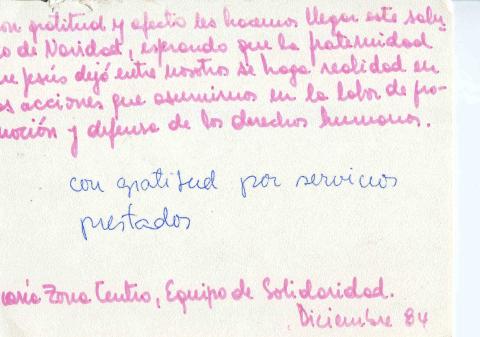 on gratitud y afecto les hacemos llegar este salu-
o de Navidad, esperando que la fraternidad
ue Jesús dejó entre nosotros se haga realidad en
as acciones que asumimos en la labor de pro-
moción y defensa de los derechos humanos.
con gratitud por servicios
prestados
caría Zona Centro, Equipo de Solidaridad.
Diciembre 84